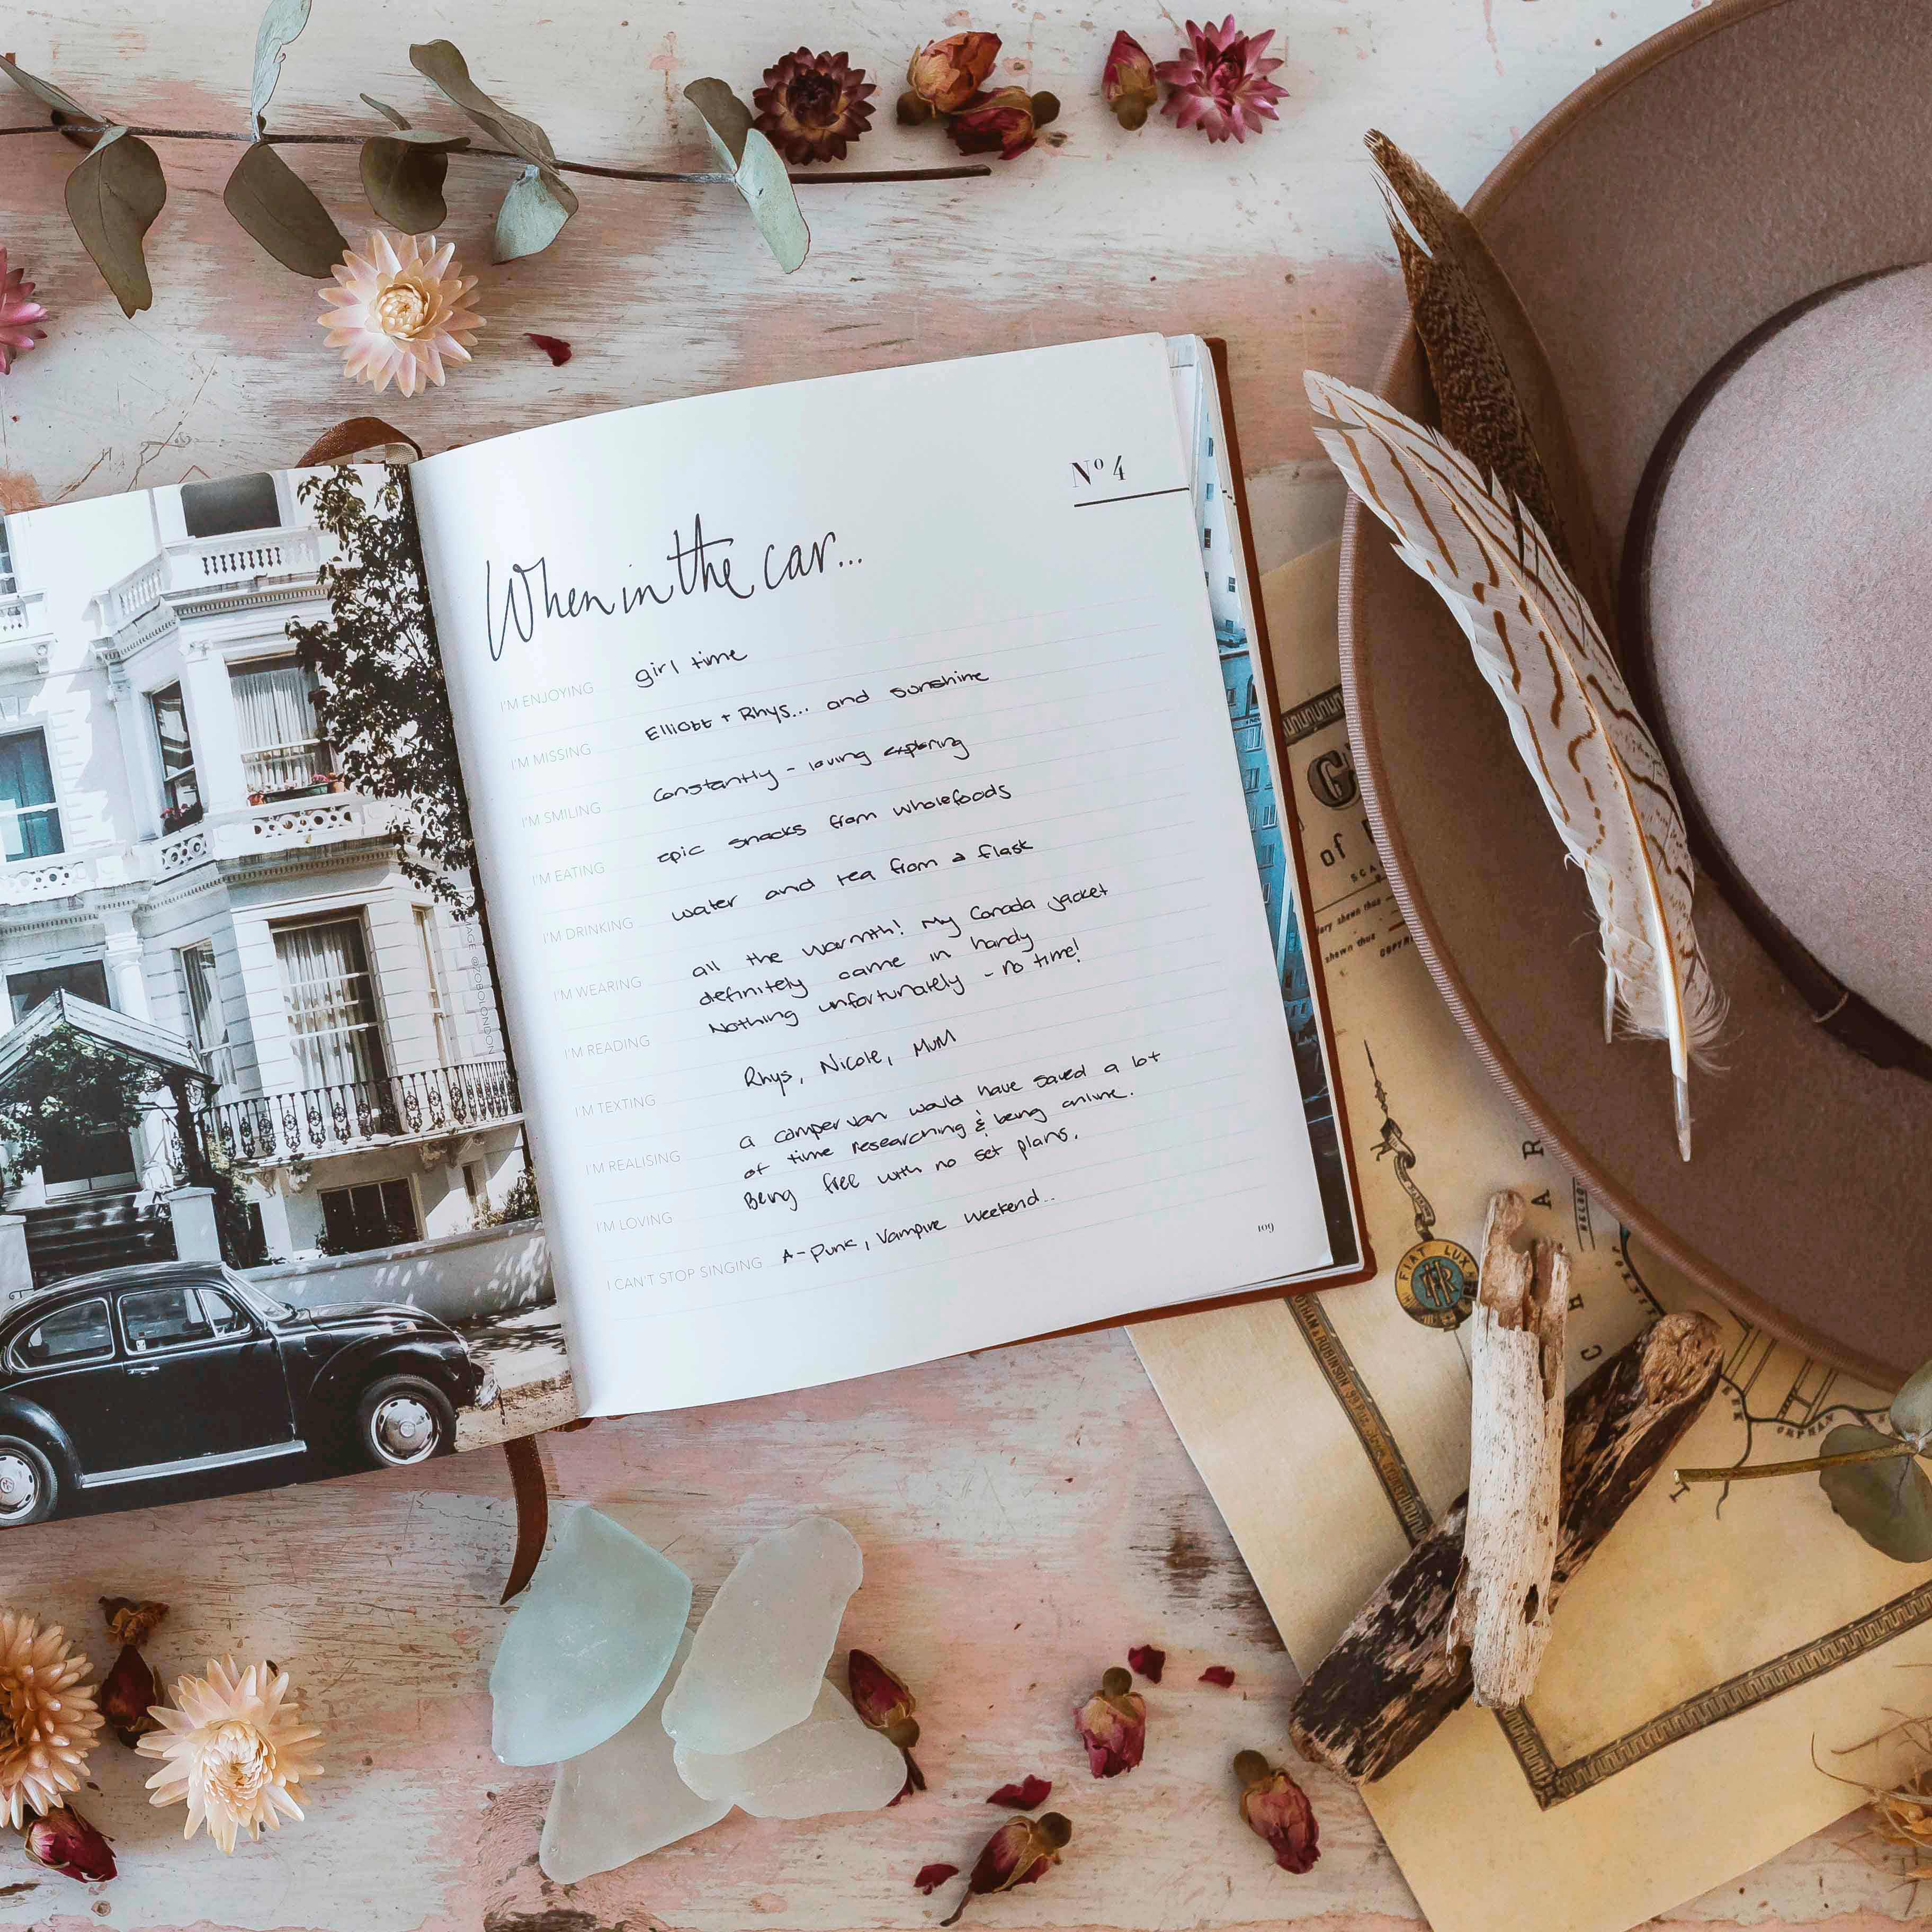 Nº 4
When in the car...
I'M ENJOYING girl time
I'M MISSING Elliott + Rhys... and sunshine
I'M SMILING constantly - loving exploring
I'M EATING epic snacks from wholefoods
I'M DRINKING water and tea from a flask
I'M WEARING all the warmth! My Canada jacket
definitely came in handy
I'M READING Nothing unfortunately - no time!
I'M TEXTING Rhys, Nicole, Mum
I'M REALISING a camper van would have saved a lot
of time researching & being online.
I'M LOVING Being free with no set plans.
I CAN'T STOP SINGING A-Punk, Vampire Weekend..
109
IMAGE @ZOBOLONDON
of
shewn thus
FIAT LUX